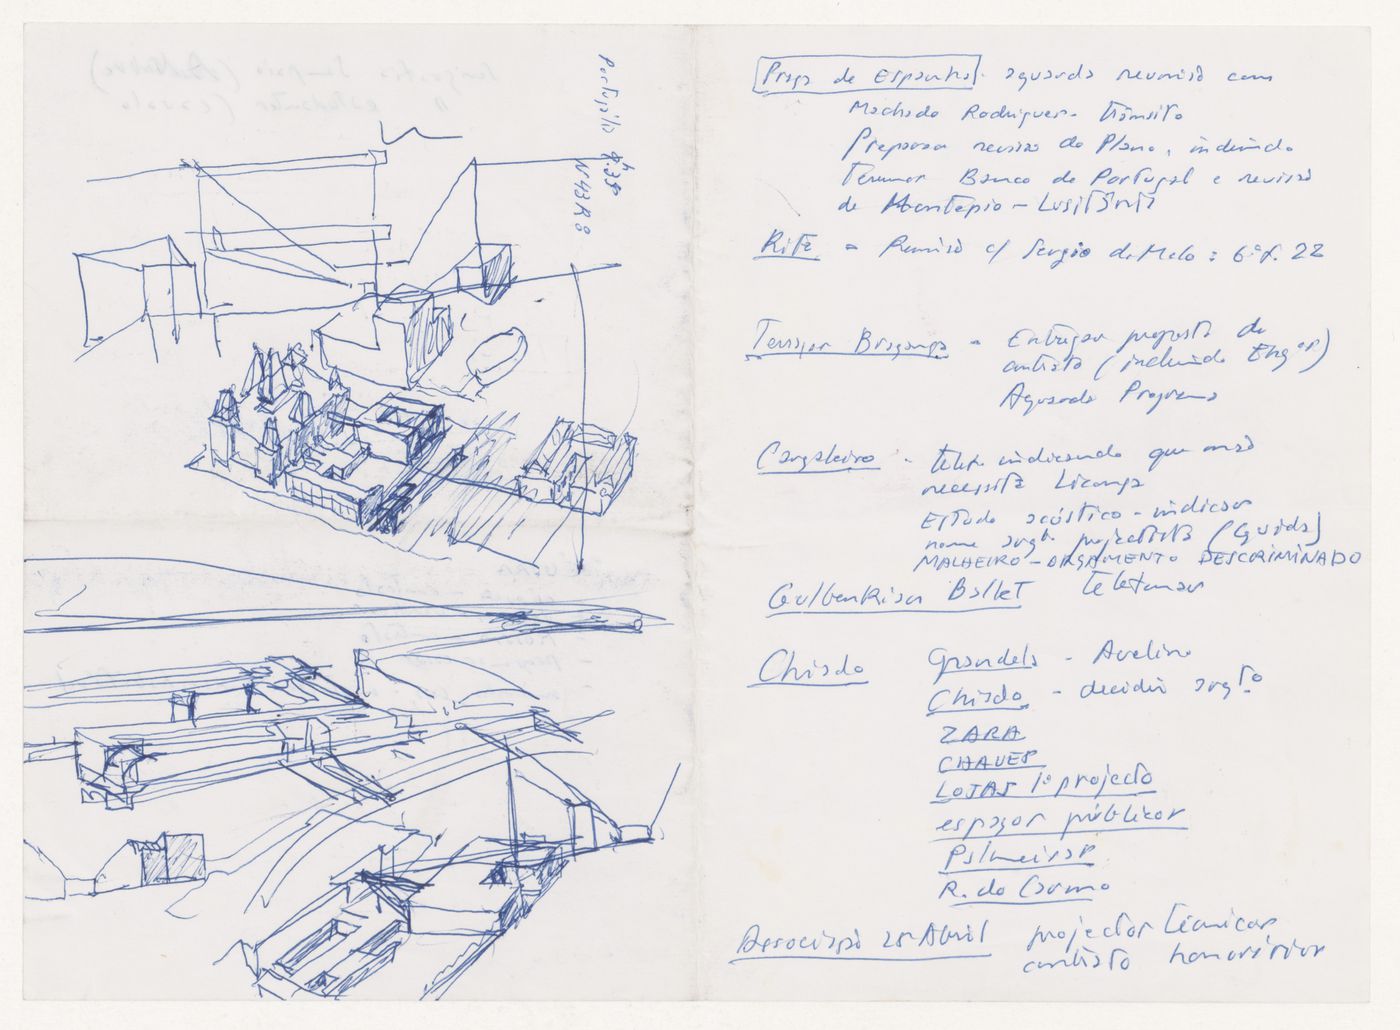 Portugália 8.30h
N43R8
Praça de Espanha - aguarda reunião com
Machado Rodrigues - trânsito
Preparar revisão do Plano, incluindo
Terrenos Banco de Portugal e revisão
de Montepio - Lusitânia
Rita = Reunião c/ Sergio de Melo: 6ª f. 22
Terraços Bragança - Entregar proposta de
contrato (incluindo Engos)
Aguarda Programa
Cargaleiro - telef. indicando que não
necessita Licença
Estudo acústico - indicar
nome projectista (Guida)
MALHEIRO - ORÇAMENTO DESCRIMINADO
Gulbenkian Ballet telefonar
Chiado Grandela - Avelino
Chiado - decidir
ZARA
CHAVES
LOJAS 1º projecto
espaços públicos
Palmeiras
R. do Carmo
Associação 25 Abril projectos técnicos
contrato honorários